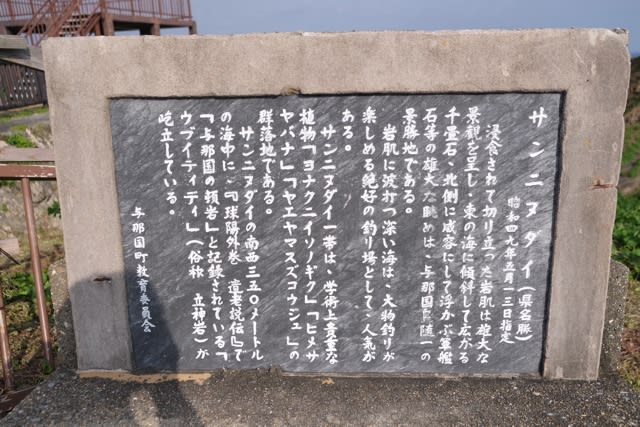 サンニヌダイ(県名勝)
昭和四九年五月一三日指定
浸食されて切り立った岩肌は雄大な
景観を呈し、東の海に傾斜して広がる
千畳石、北側に威容にして浮かぶ軍艦
石等の雄大な眺めは、与那国島随一の
景勝地である。
岩肌に波打つ深い海は、大物釣りが
楽しめる絶好の釣り場として、人気が
ある。
サンニヌダイ一帯は、学術上貴重な
植物「ヨナクニイソノギク」「ヒメサ
ヤバナ」「ヤエヤマスズコウジュ」の
群落地である。
サンニヌダイの南西三五〇メートル
の海中に、『球陽外巻 遺老説伝』で
『与那国の頓岩』と記録されている「
ウブイティディ」(俗称 立神岩)が
屹立している。
与那国町教育委員会